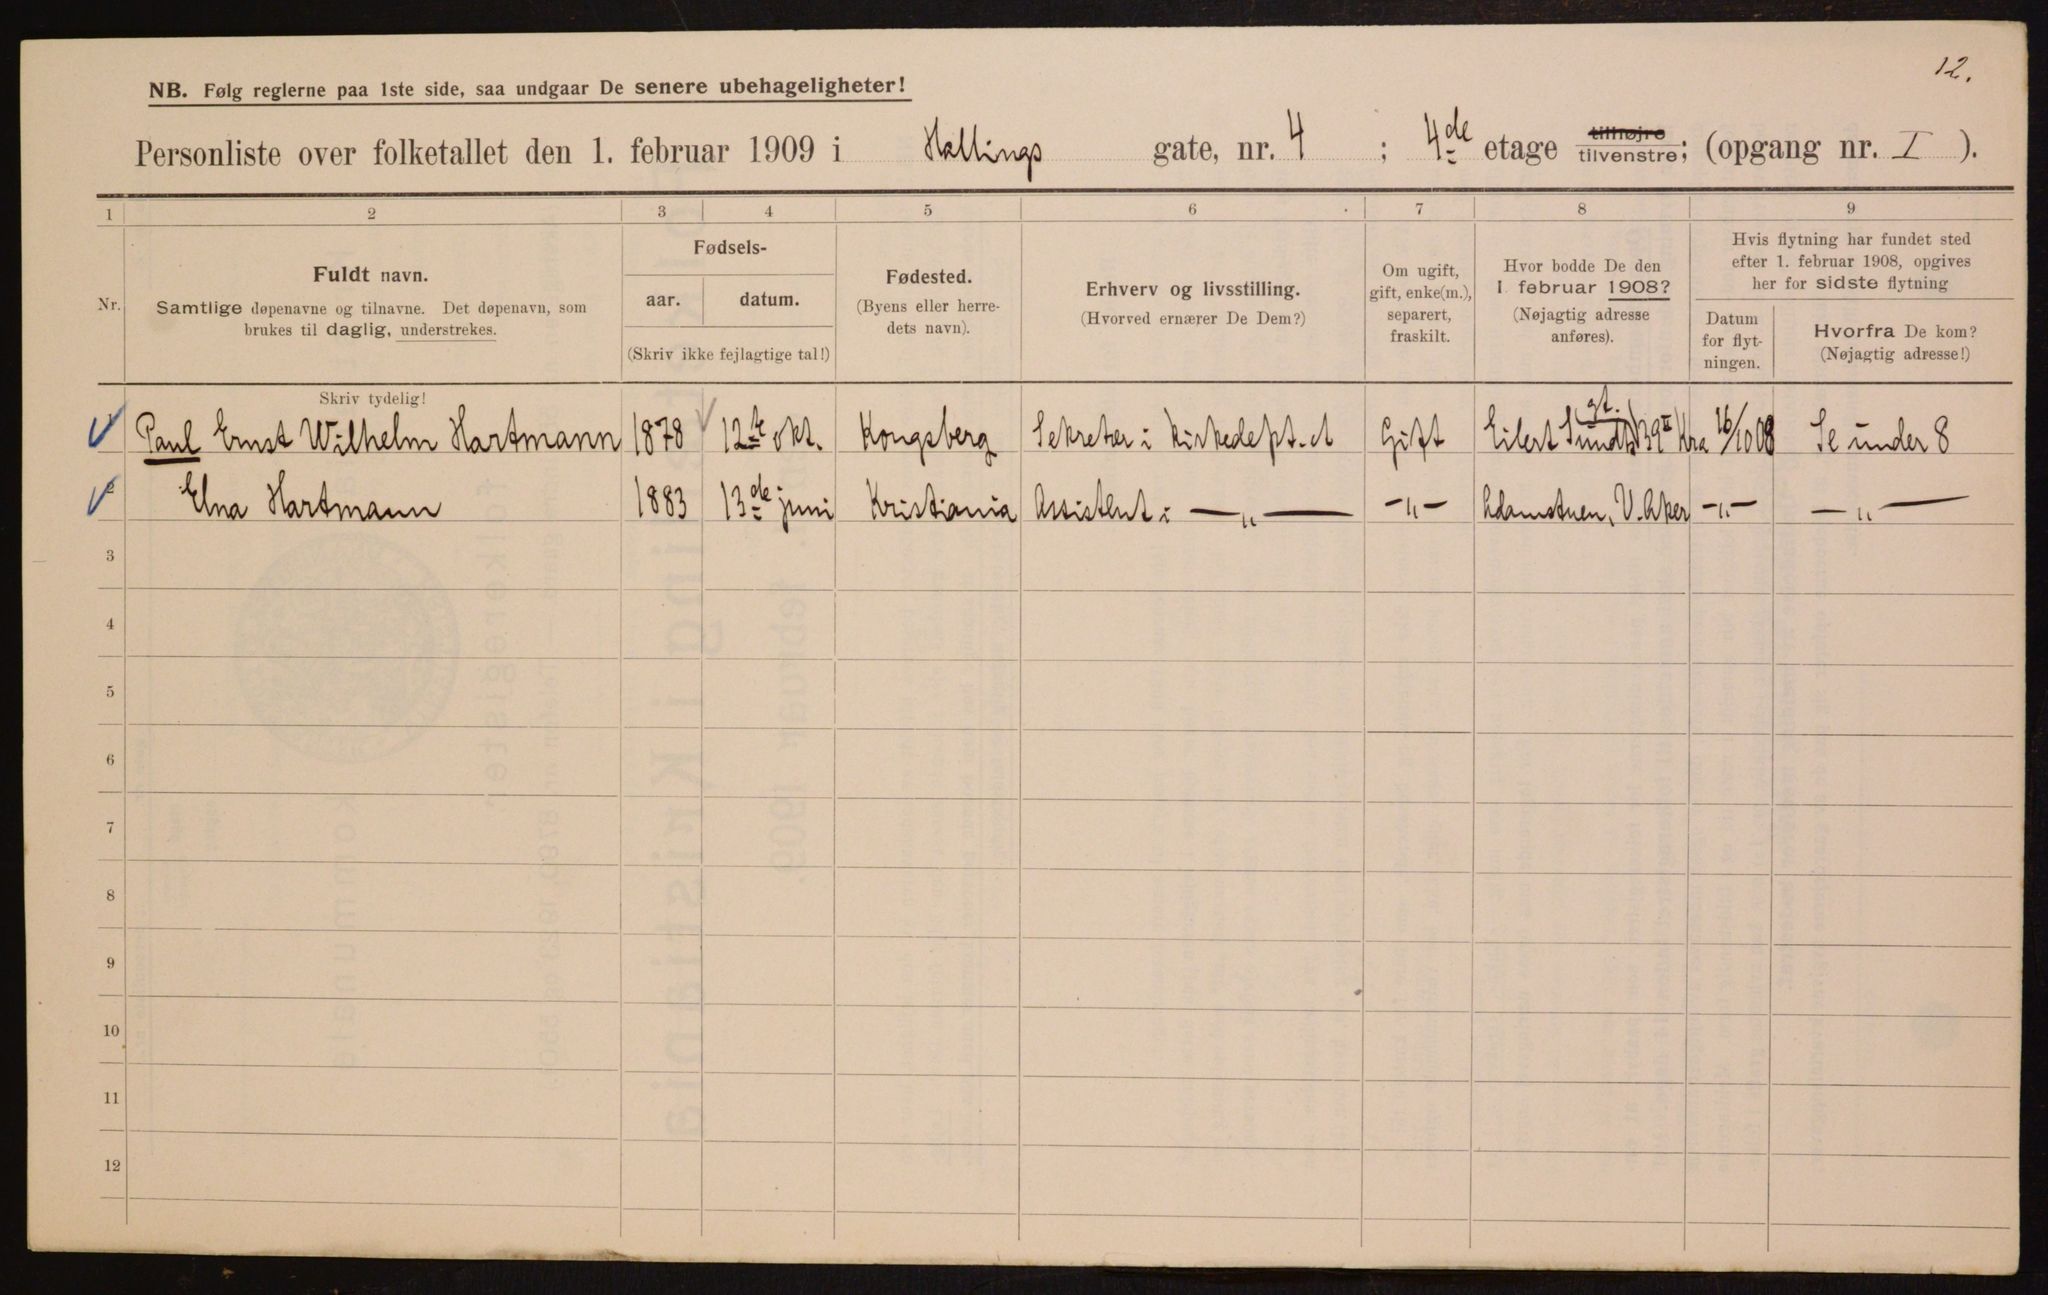 12.
NB. Følg reglerne paa 1ste side, saa undgaar De senere ubehageligheter!
Personliste over folketallet den 1. februar 1909 i Hallings gate, nr. 4 ; 4de etage tilhøjre tilvenstre; (opgang nr. I ).
1 2 3 4 5 6 7 8 9
Nr.
Fuldt navn.
Samtlige døpenavne og tilnavne. Det døpenavn, som
brukes til daglig, understrekes.
Fødsels-
aar. datum.
(Skriv ikke fejlagtige tal!)
Fødested.
(Byens eller herre-
dets navn).
Erhverv og livsstilling.
(Hvorved ernærer De Dem?)
Om ugift,
gift, enke(m.),
separert,
fraskilt.
Hvor bodde De den
1. februar 1908?
(Nøjagtig adresse
anføres).
Hvis flytning har fundet sted
efter 1. februar 1908, opgives
her for sidste flytning
Datum
for flyt-
ningen.
Hvorfra De kom?
(Nøjagtig adresse!)
Skriv tydelig!
1 Paul Ernst Wilhelm Hartmann 1878 12te okt. Kongsberg Sekretær i Kirkedept.et Gift Eilert Sundts gt. 39 II Kra 16/10 08 Se under 8
2 Elna Hartmann 1883 13de juni Kristiania Assistent i —„— —„— Adamstuen, V. Aker —„— —„—
3
4
5
6
7
8
9
10
11
12